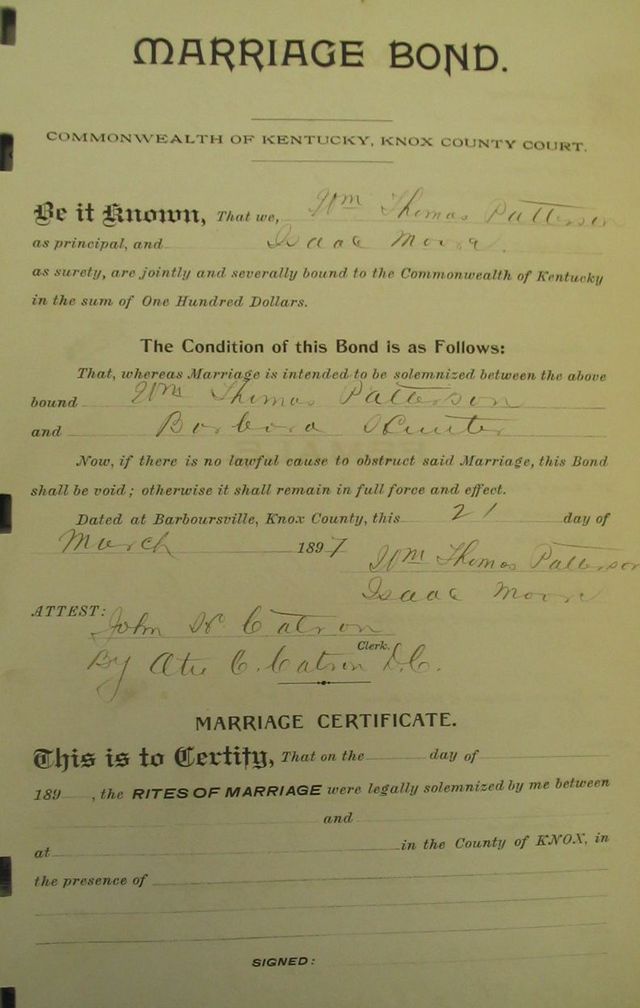 MARRIAGE BOND.
COMMONWEALTH OF KENTUCKY, KNOX COUNTY COURT.
Be it Known, That we, Wm Thomas Patterson
as principal, and Isaac Moore.
as surety, are jointly and severally bound to the Commonwealth of Kentucky
in the sum of One Hundred Dollars.
The Condition of this Bond is as Follows:
That, whereas Marriage is intended to be solemnized between the above
bound Wm Thomas Patterson
and Barbora Hunter
Now, if there is no lawful cause to obstruct said Marriage, this Bond
shall be void; otherwise it shall remain in full force and effect.
Dated at Barboursville, Knox County, this 21 day of
March 1897 Wm Thomas Patterson
Isaac Moore
ATTEST: John H. Catron
Clerk.
By C. Catron D.C.
MARRIAGE CERTIFICATE.
This is to Certify, That on the day of
189 , the RITES OF MARRIAGE were legally solemnized by me between
and
at in the County of KNOX, in
the presence of
SIGNED: